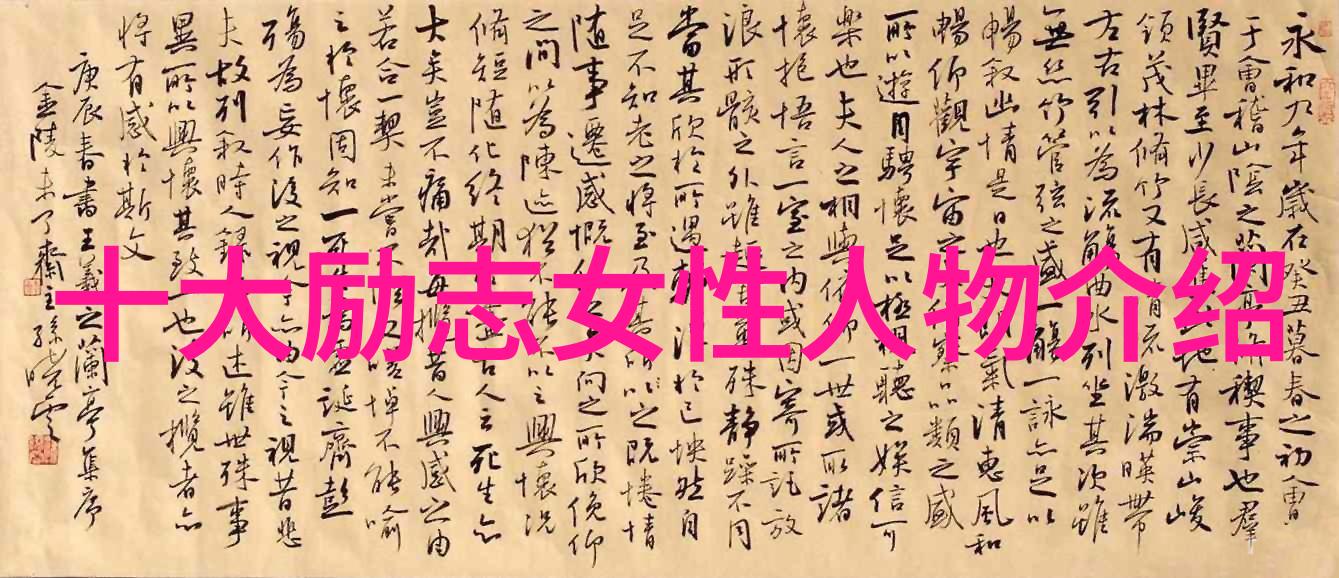 十大励志女性人物介绍
永和九年歲在癸丑暮春之初會
于會稽山陰之蘭亭脩稧事也羣
賢畢至少長咸集此地有崇山峻
領茂林脩竹又有清流激湍暎帶
左右引以為流觴曲水列坐其次雖
無絲竹管弦之盛一觴一詠亦足以
暢叙幽情是日也天朗氣清惠風和
暢仰觀宇宙之大俯察品類之盛
所以遊目騁懷足以極視聽之娛信可
樂也夫人之相與俯仰一世或取諸
懷抱悟言一室之內或因寄所託放
浪形骸之外雖趣舍萬殊靜躁不同
當其欣於所遇暫得於己快然自
足不知老之將至及其所之既惓情
隨事遷感慨係之矣向之所欣俛仰
之間以為陳迹猶不能不以之興懷況
脩短隨化終期於盡古人云死生亦
大矣豈不痛哉每攬昔人興感之由
若合一契未嘗不臨文嗟悼不能喻
之於懷固知一死生為虛誕齊彭
殤為妄作後之視今亦由今之視昔悲
夫故列叙時人錄其所述雖世殊事
異所以興懷其致一也後之攬者亦
將有感於斯文
庚辰春書王羲之蘭亭集序
金陵未了齋主孫曉雲